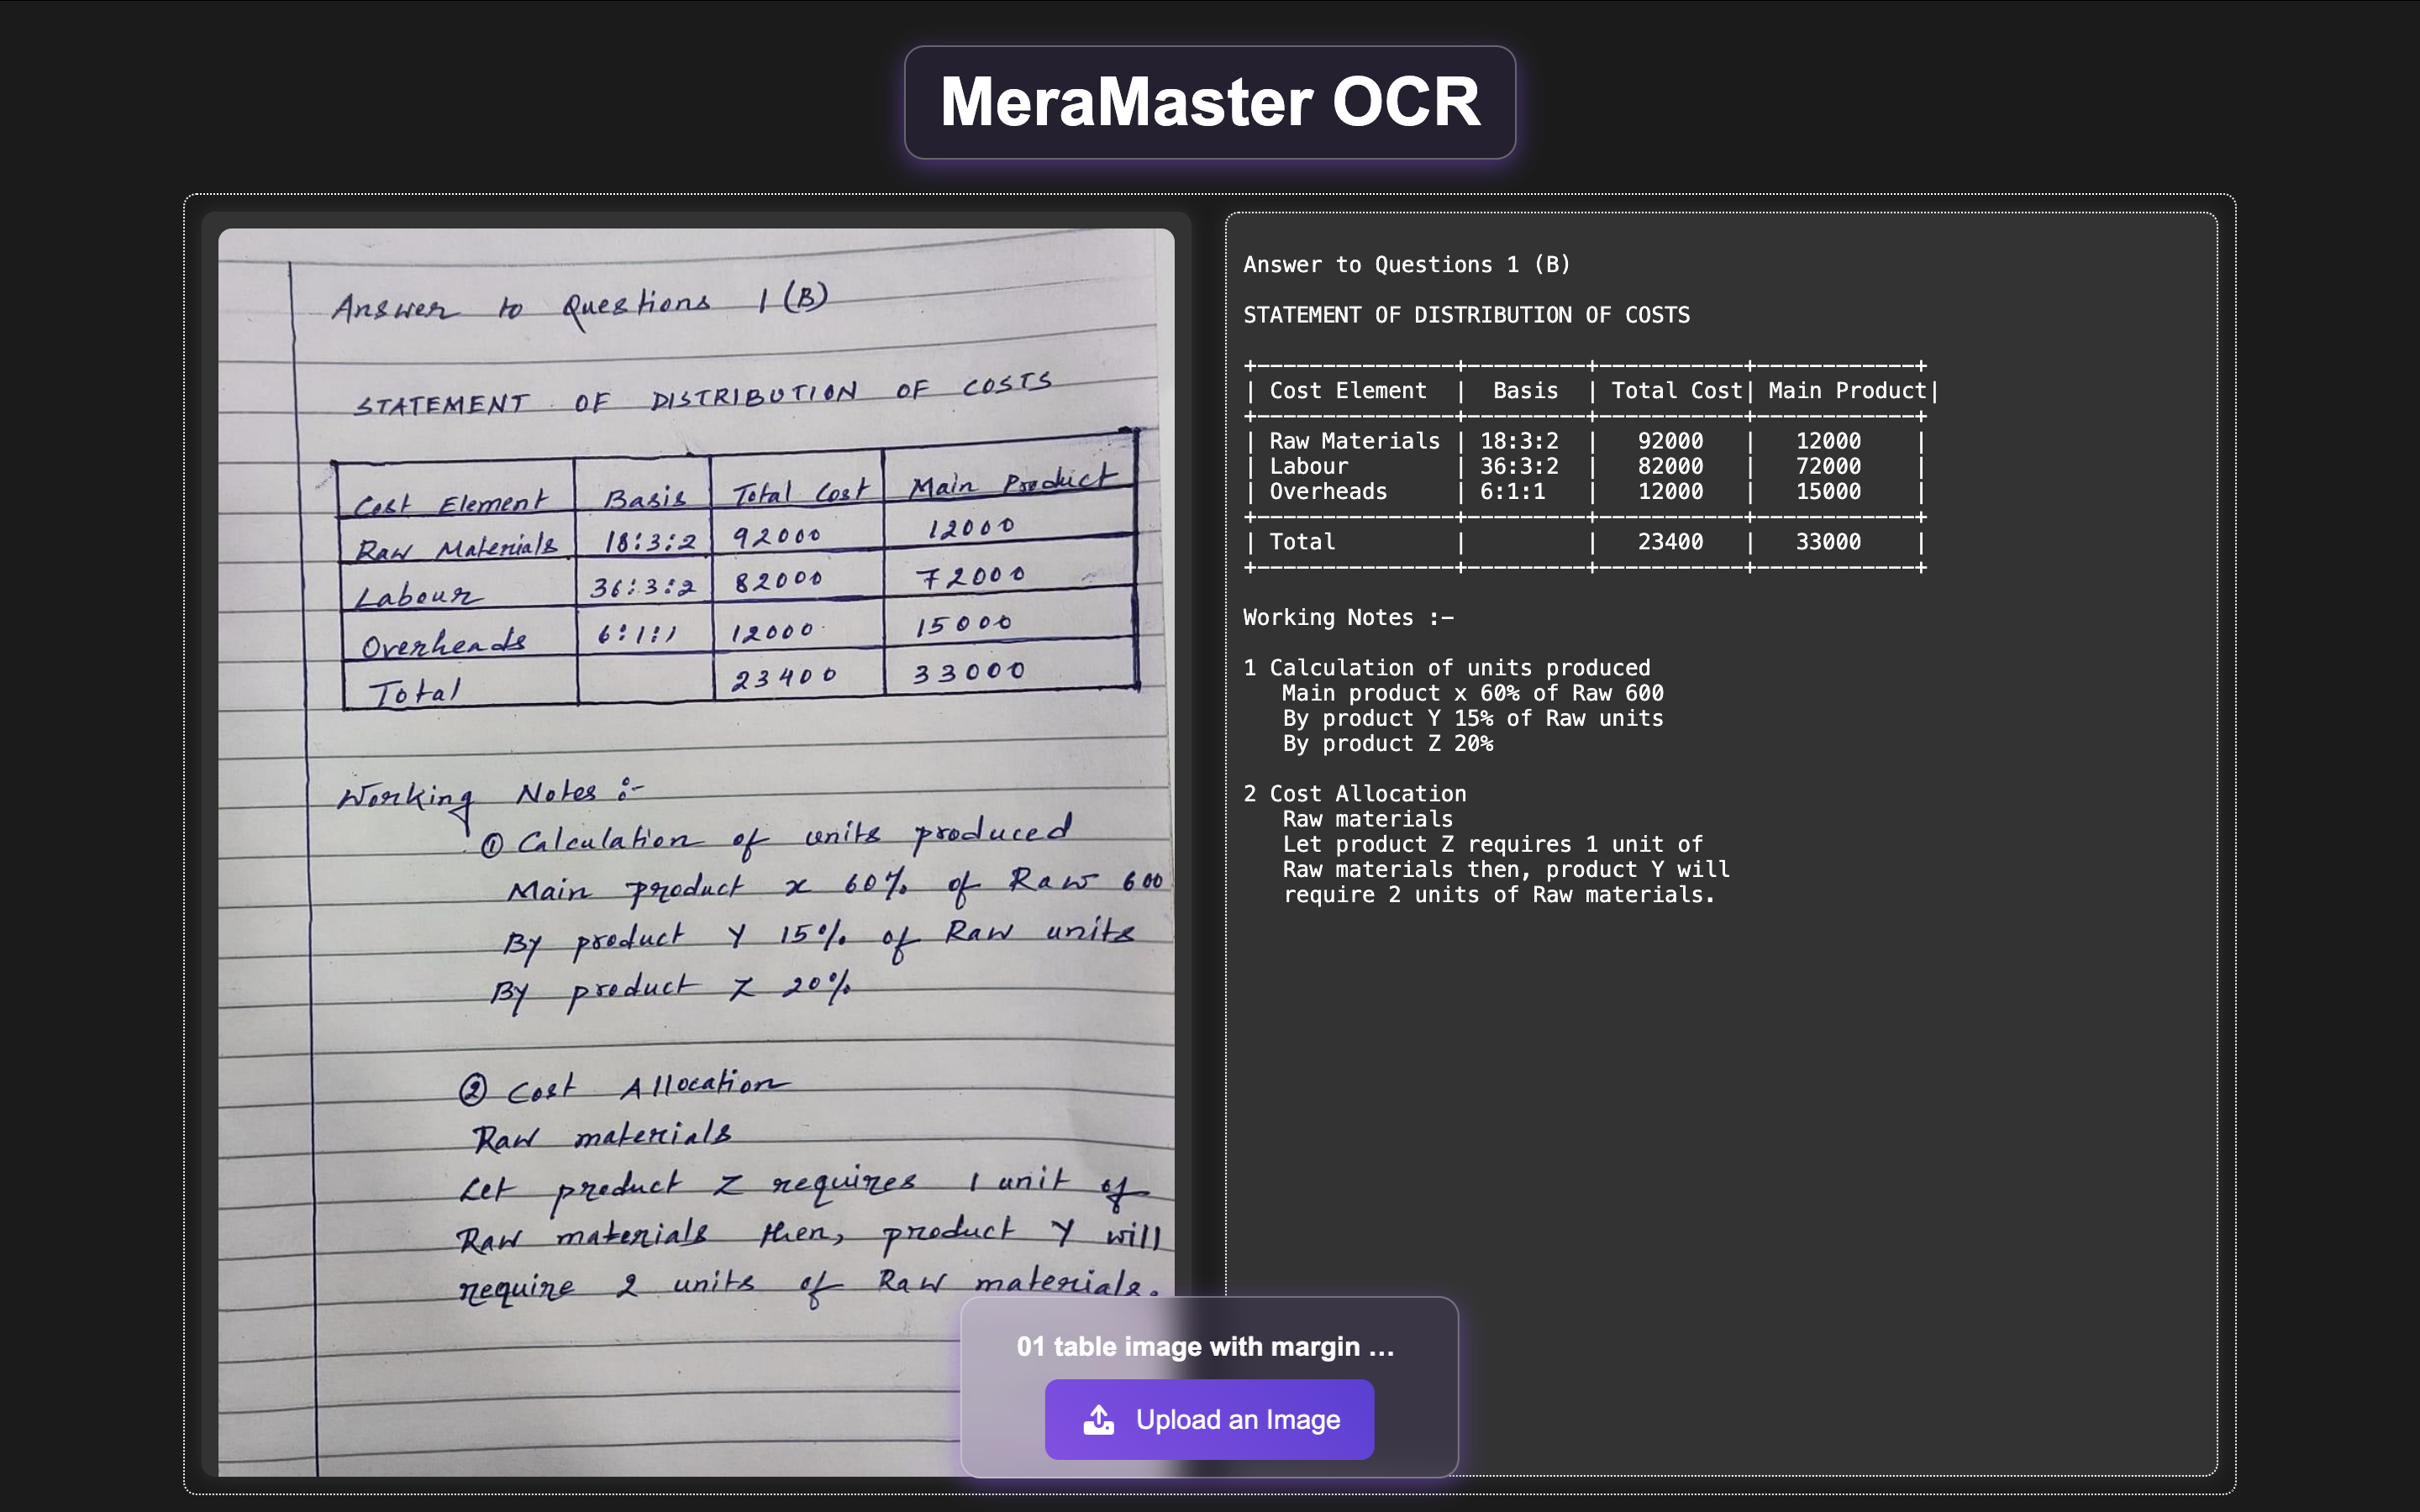 MeraMaster OCR
Answer to Questions 1 (B)
STATEMENT OF DISTRIBUTION OF COSTS
Cost Element Basis Total Cost Main Product
Raw Materials 18:3:2 92000 12000
Labour 36:3:2 82000 72000
Overheads 6:1:1 12000 15000
Total 23400 33000
Working Notes :-
① Calculation of units produced
Main product x 60% of Raw 600
By product Y 15% of Raw units
By product Z 20%
② Cost Allocation
Raw materials
Let product Z requires 1 unit of
Raw materials then, product Y will
require 2 units of Raw materials.
Answer to Questions 1 (B)
STATEMENT OF DISTRIBUTION OF COSTS
+----------------+---------+-----------+------------+
| Cost Element | Basis | Total Cost| Main Product|
+----------------+---------+-----------+------------+
| Raw Materials | 18:3:2 | 92000 | 12000 |
| Labour | 36:3:2 | 82000 | 72000 |
| Overheads | 6:1:1 | 12000 | 15000 |
+----------------+---------+-----------+------------+
| Total | | 23400 | 33000 |
+----------------+---------+-----------+------------+
Working Notes :-
1 Calculation of units produced
Main product x 60% of Raw 600
By product Y 15% of Raw units
By product Z 20%
2 Cost Allocation
Raw materials
Let product Z requires 1 unit of
Raw materials then, product Y will
require 2 units of Raw materials.
01 table image with margin ...
Upload an Image